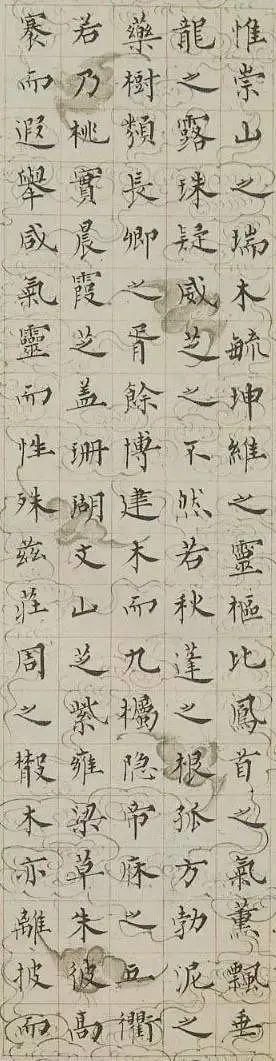 惟崇山之瑞木毓坤維之靈樞比鳳首之氣薰飄垂
龍之露珠疑威芝之不然若秋蓬之根孤方勃泥之
藥樹類長卿之胥餘博建木而九欘隐帝庥之五衢
若乃桃實晨霞芝盖珊湖文山芝紫雍梁草朱彼高
褰而遐舉咸氣靈而性殊茲莊周之散木亦離披而